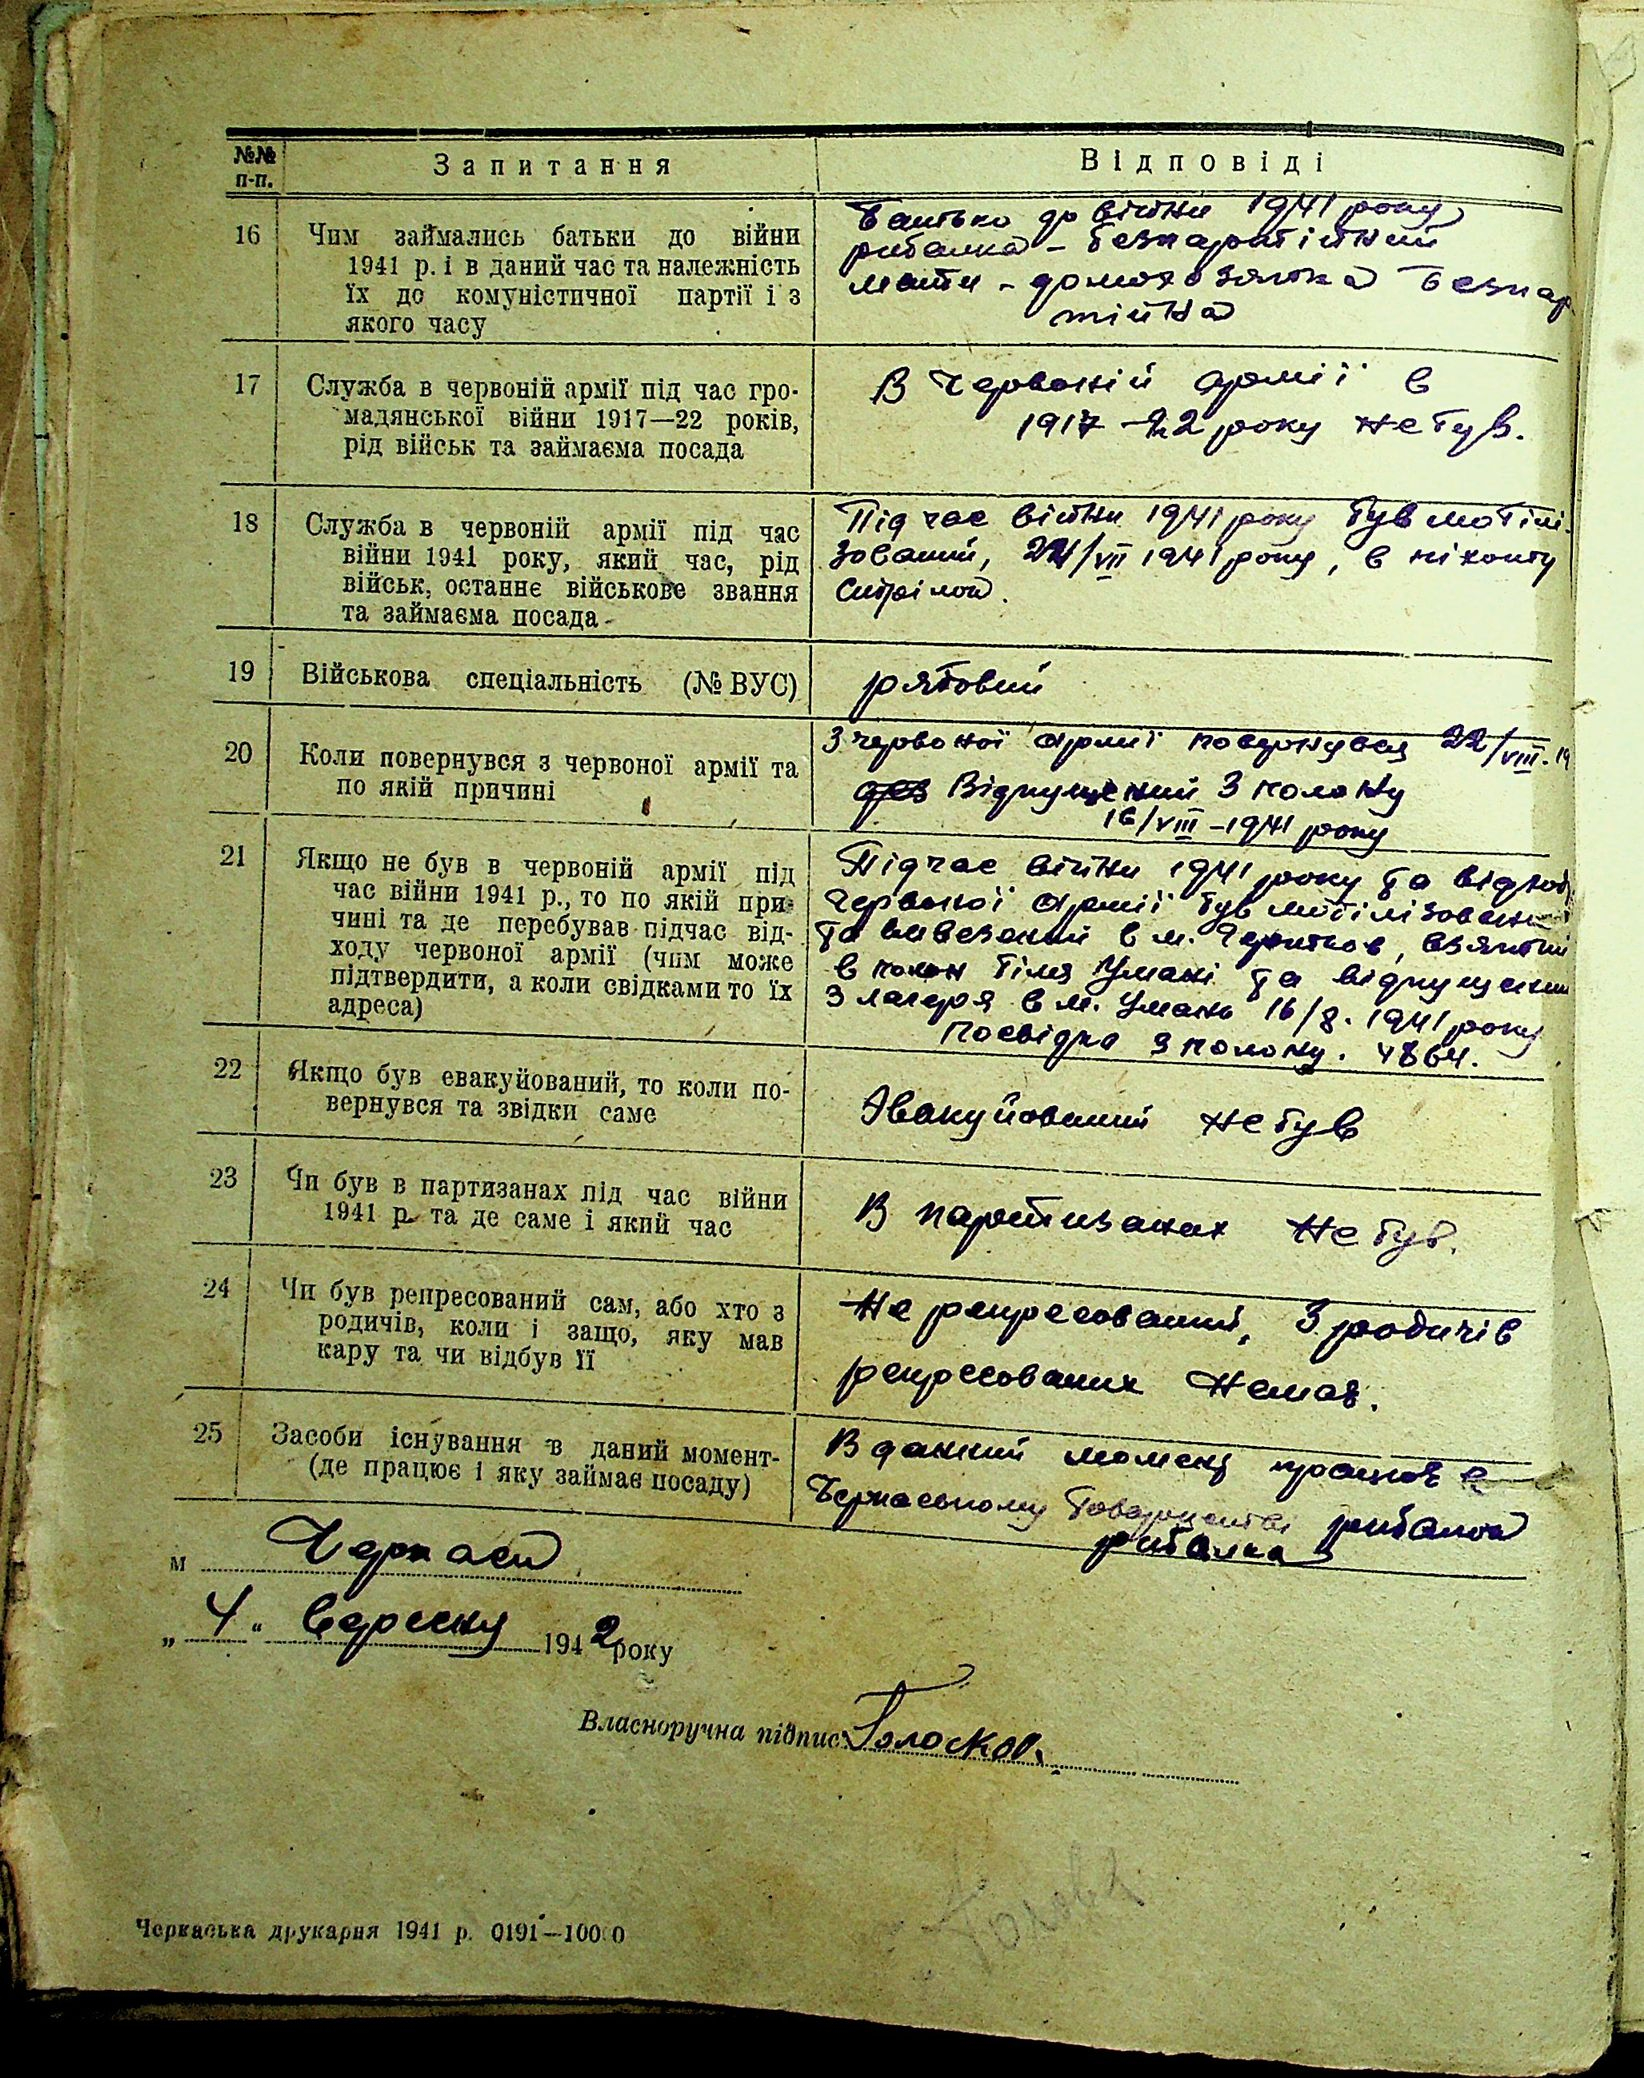 №№ п-п.
Запитання
Відповіді
16
Чим займались батьки до війни
1941 р. і в даний час та належність
їх до комуністичної партії і з
якого часу
Батько до війни 1941 року
рибалка - безпартійний
мати - домохозяйка безпар
тійна
17
Служба в червоній армії під час гро-
мадянської війни 1917—22 років,
рід військ та займаєма посада
В Червоній армії в
1917-22 року не був.
18
Служба в червоній армії під час
війни 1941 року, який час, рід
військ, останнє військове звання
та займаєма посада
Під час війни 1941 року був мобілі-
зований, 22/VII 1941 року, в піхоту
19
Військова спеціальність (№ ВУС)
рядовий
20
Коли повернувся з червоної армії та
по якій причині
З червоної армії повернувся 22/VIII. 19
Відпущений з полону
16/VIII-1941 року
21
Якщо не був в червоній армії під
час війни 1941 р., то по якій при-
чині та де перебував підчас від-
ходу червоної армії (чим може
підтвердити, а коли свідками то їх
адреса)
Підчас війни 1941 року та відход
Червоної армії був мобілізований
та вивезений в м. взятий
в полон біля Умані та відпущений
з лагеря в м. Умань 16/8. 1941 року
посвідка з полону. 4864.
22
Якщо був евакуйований, то коли по-
вернувся та звідки саме
Авакуйований не був
23
Чи був в партизанах під час війни
1941 р. та де саме і який час
В партизанах не був.
24
Чи був репресований сам, або хто з
родичів, коли і защо, яку мав
кару та чи відбув її
Не репресований, З родичів
репресованих немає.
25
Засоби існування в даний момент-
(де працює і яку займає посаду)
В даний момент працює в
Черкаському Товаристві рибалок
рибалка
м Черкаси
„ 4 “ вересня 1942 року
Власноручна підпис Голосков.
Голова
Черкаська друкарня 1941 р. 0191—100 0